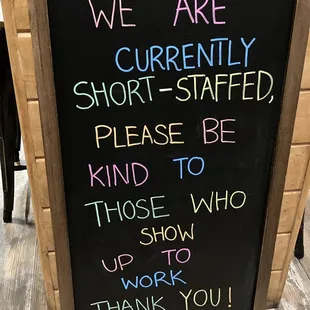 WE ARE
CURRENTLY
SHORT-STAFFED,
PLEASE BE
KIND TO
THOSE WHO
SHOW
UP TO
WORK
THANK YOU!